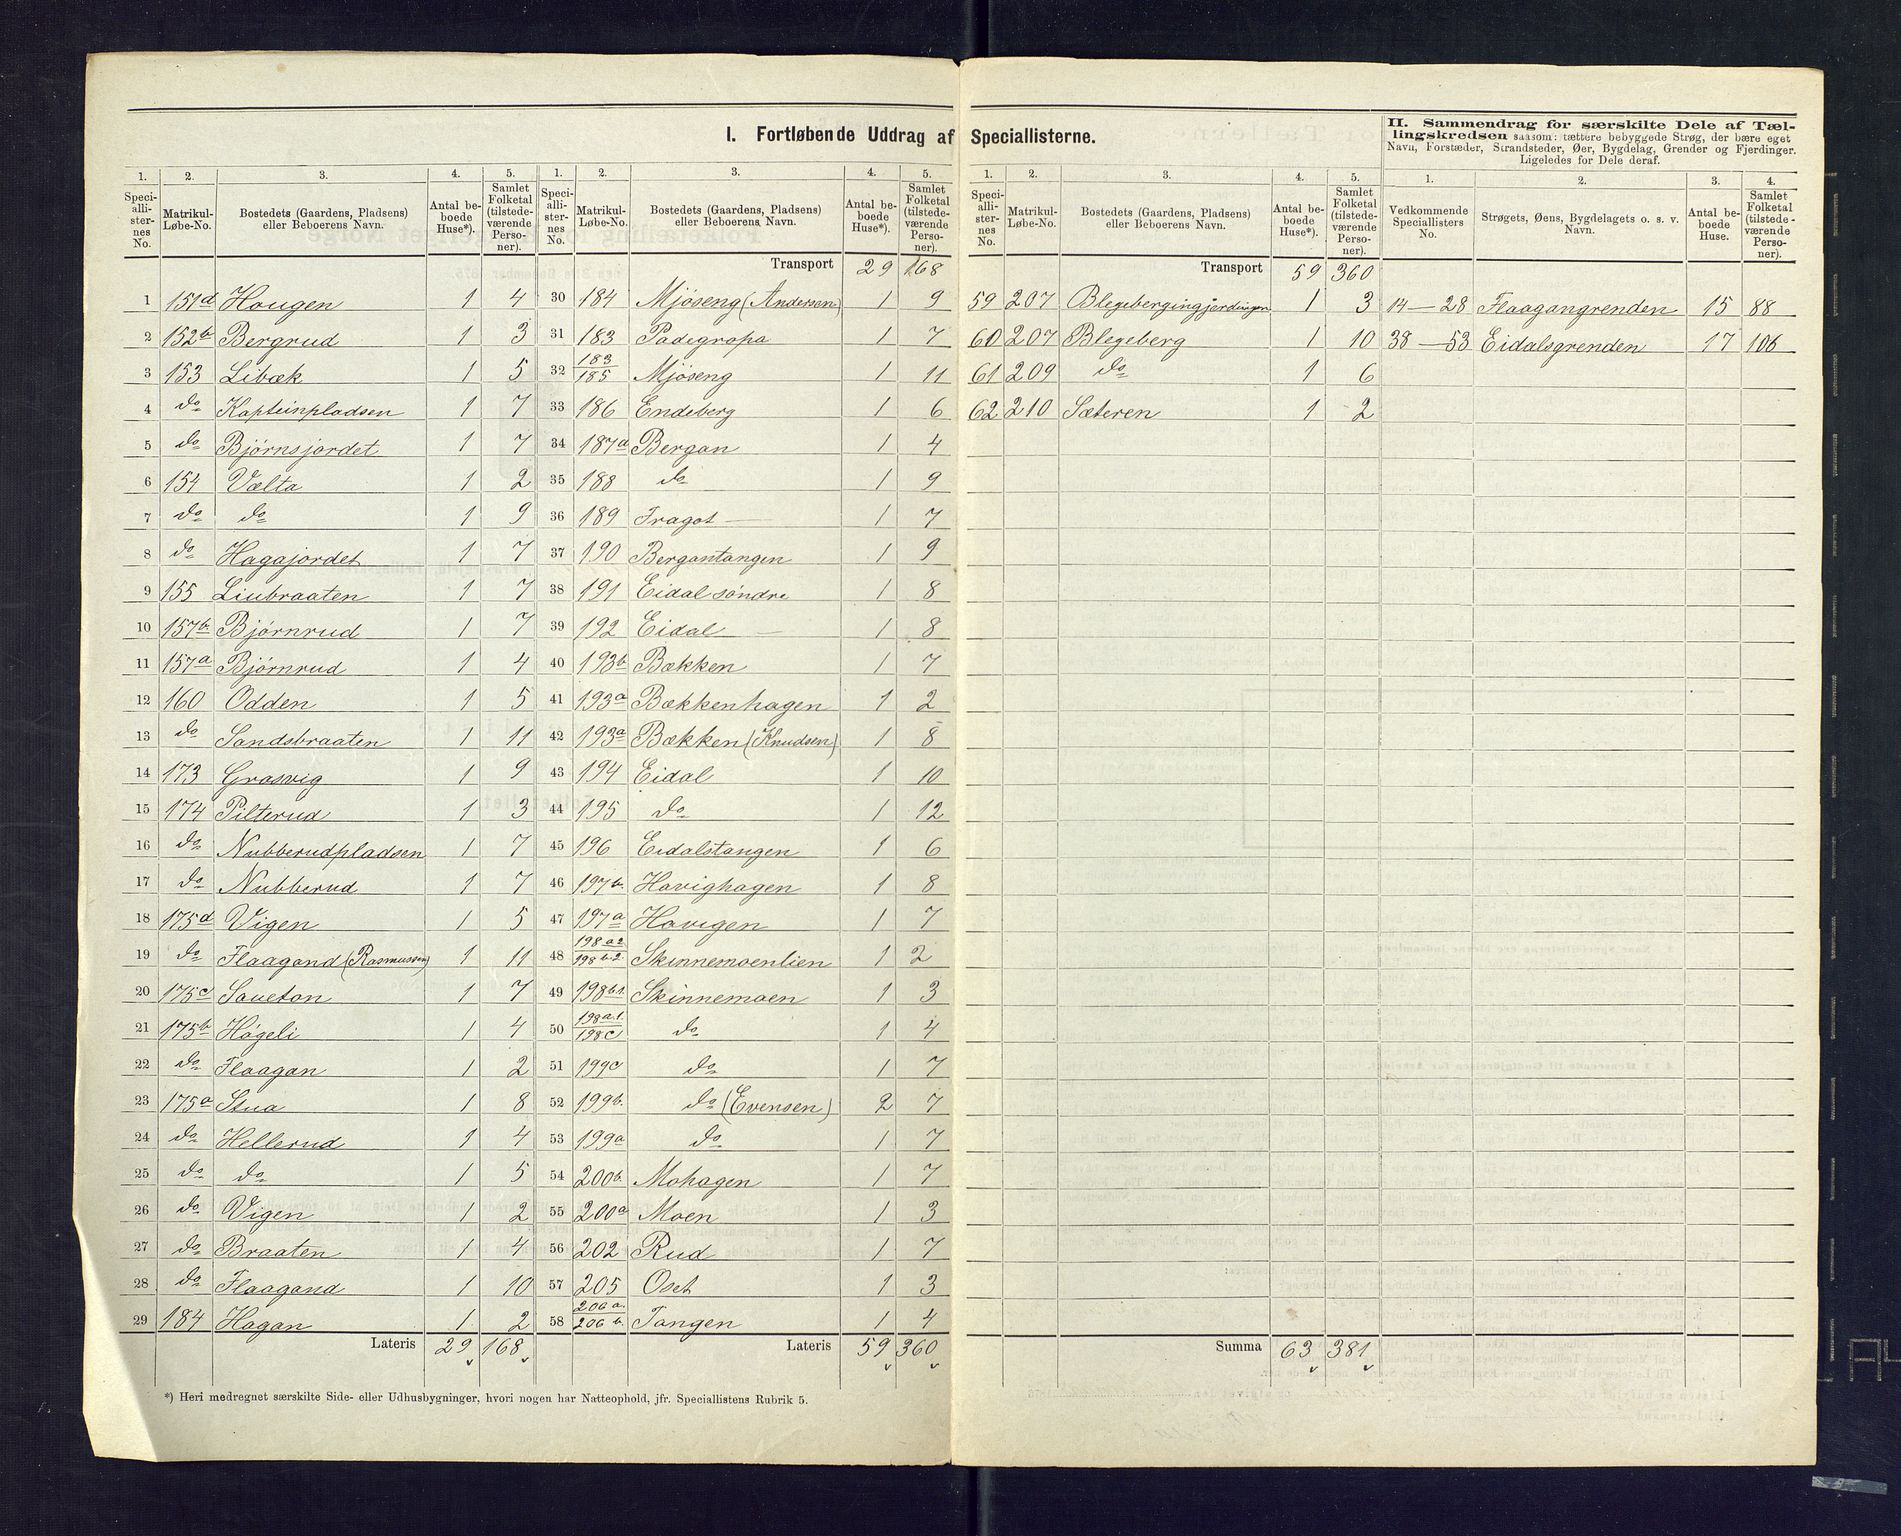 I. Fortløbende Uddrag af Speciallisterne.
II. Sammendrag for særskilte Dele af Tæl-
lingskredsen saasom: tættere bebyggede Strøg, der bære eget
Navn, Forstæder, Strandsteder, Øer, Bygdelag, Grender og Fjerdinger.
Ligeledes for Dele deraf.
1. 2. 3. 4. 5.
Speciallisternes No. Matrikul-Løbe-No. Bostedets (Gaardens, Pladsens) eller Beboerens Navn. Antal beboede Huse*). Samlet Folketal (tilstedeværende Personer).
1 151d Hougen 1 4
2 152b Bergrud 1 3
3 153 Libæk 1 5
4 do Kapteinpladsen 1 7
5 do Bjørnsjordet 1 7
6 154 Vælta 1 2
7 do do 1 9
8 do Hagajordet 1 7
9 155 Liubraaten 1 7
10 157b. Bjørnrud 1 7
11 157a Bjørnrud 1 4
12 160 Odden 1 5
13 do Sandsbraaten 1 11
14 173 Grasvig 1 9
15 174 Pilterud 1 3
16 do Nubberudpladsen 1 7
17 do Nubberud 1 7
18 175d Vigen 1 5
19 do Flaagand (Rasmussen) 1 11
20 175c Saueton 1 7
21 175b Høgeli 1 4
22 do Flaagan 1 2
23 175a Stua 1 8
24 do Hellerud 1 4
25 do do 1 5
26 do Vigen 1 2
27 do Braaten 1 4
28 do Flaagand 1 10
29 184 Hagan 1 2
Lateris 29 168
1. 2. 3. 4. 5.
Speciallisternes No. Matrikul-Løbe-No. Bostedets (Gaardens, Pladsens) eller Beboerens Navn. Antal beboede Huse*). Samlet Folketal (tilstedeværende Personer).
Transport 29 168
30 184 Mjøseng (Andersen) 1 9
31 183 Padegropa 1 7
32 183/185 Mjøseng 1 11
33 186 Endeberg 1 6
34 187a Bergan 1 4
35 188 do 1 9
36 189 Fragot — 1 7
37 190 Bergantangen 1 9
38 191 Eidal søndre 1 8
39 192 Eidal — 1 8
40 193b Bækken 1 7
41 193a Bækkenhagen 1 2
42 193a Bækken (Knudsen) 1 8
43 194 Eidal 1 10
44 195 do 1 12
45 196 Eidalstangen 1 6
46 197b. Havighagen 1 8
47 197a Havigen 1 7
48 198a2/198b.2 Skinnemoenlien 1 2
49 198b1. Skinnemoen 1 3
50 198a.1/198c do 1 4
51 199c do 1 7
52 199b. do (Evensen) 2 7
53 199a do 1 7
54 200b. Mohagen 1 7
55 200a Moen 1 3
56 202 Rud 1 7
57 205 Oset 1 3
58 206a./206b. Tangen 1 4
Lateris 59 360
*) Heri medregnet særskilte Side- eller Udhusbygninger, hvori nogen har Natteophold, jfr. Speciallistens Rubrik 5.
1. 2. 3. 4. 5.
Speciallisternes No. Matrikul-Løbe-No. Bostedets (Gaardens, Pladsens) eller Beboerens Navn. Antal beboede Huse*). Samlet Folketal (tilstedeværende Personer).
Transport 59 360
59 207 1 3
60 207 Blegeberg 1 10
61 209 do 1 6
62 210 Sæteren 1 2
Summa 63 381
1. 2. 3. 4.
Vedkommende Speciallisters No. Strøgets, Øens, Bygdelagets o. s. v. Navn. Antal beboede Huse. Samlet Folketal (tilstedeværende Personer).
14 — 28 Flaagangrenden 15 88
38 — 53 Eidalsgrenden 17 106